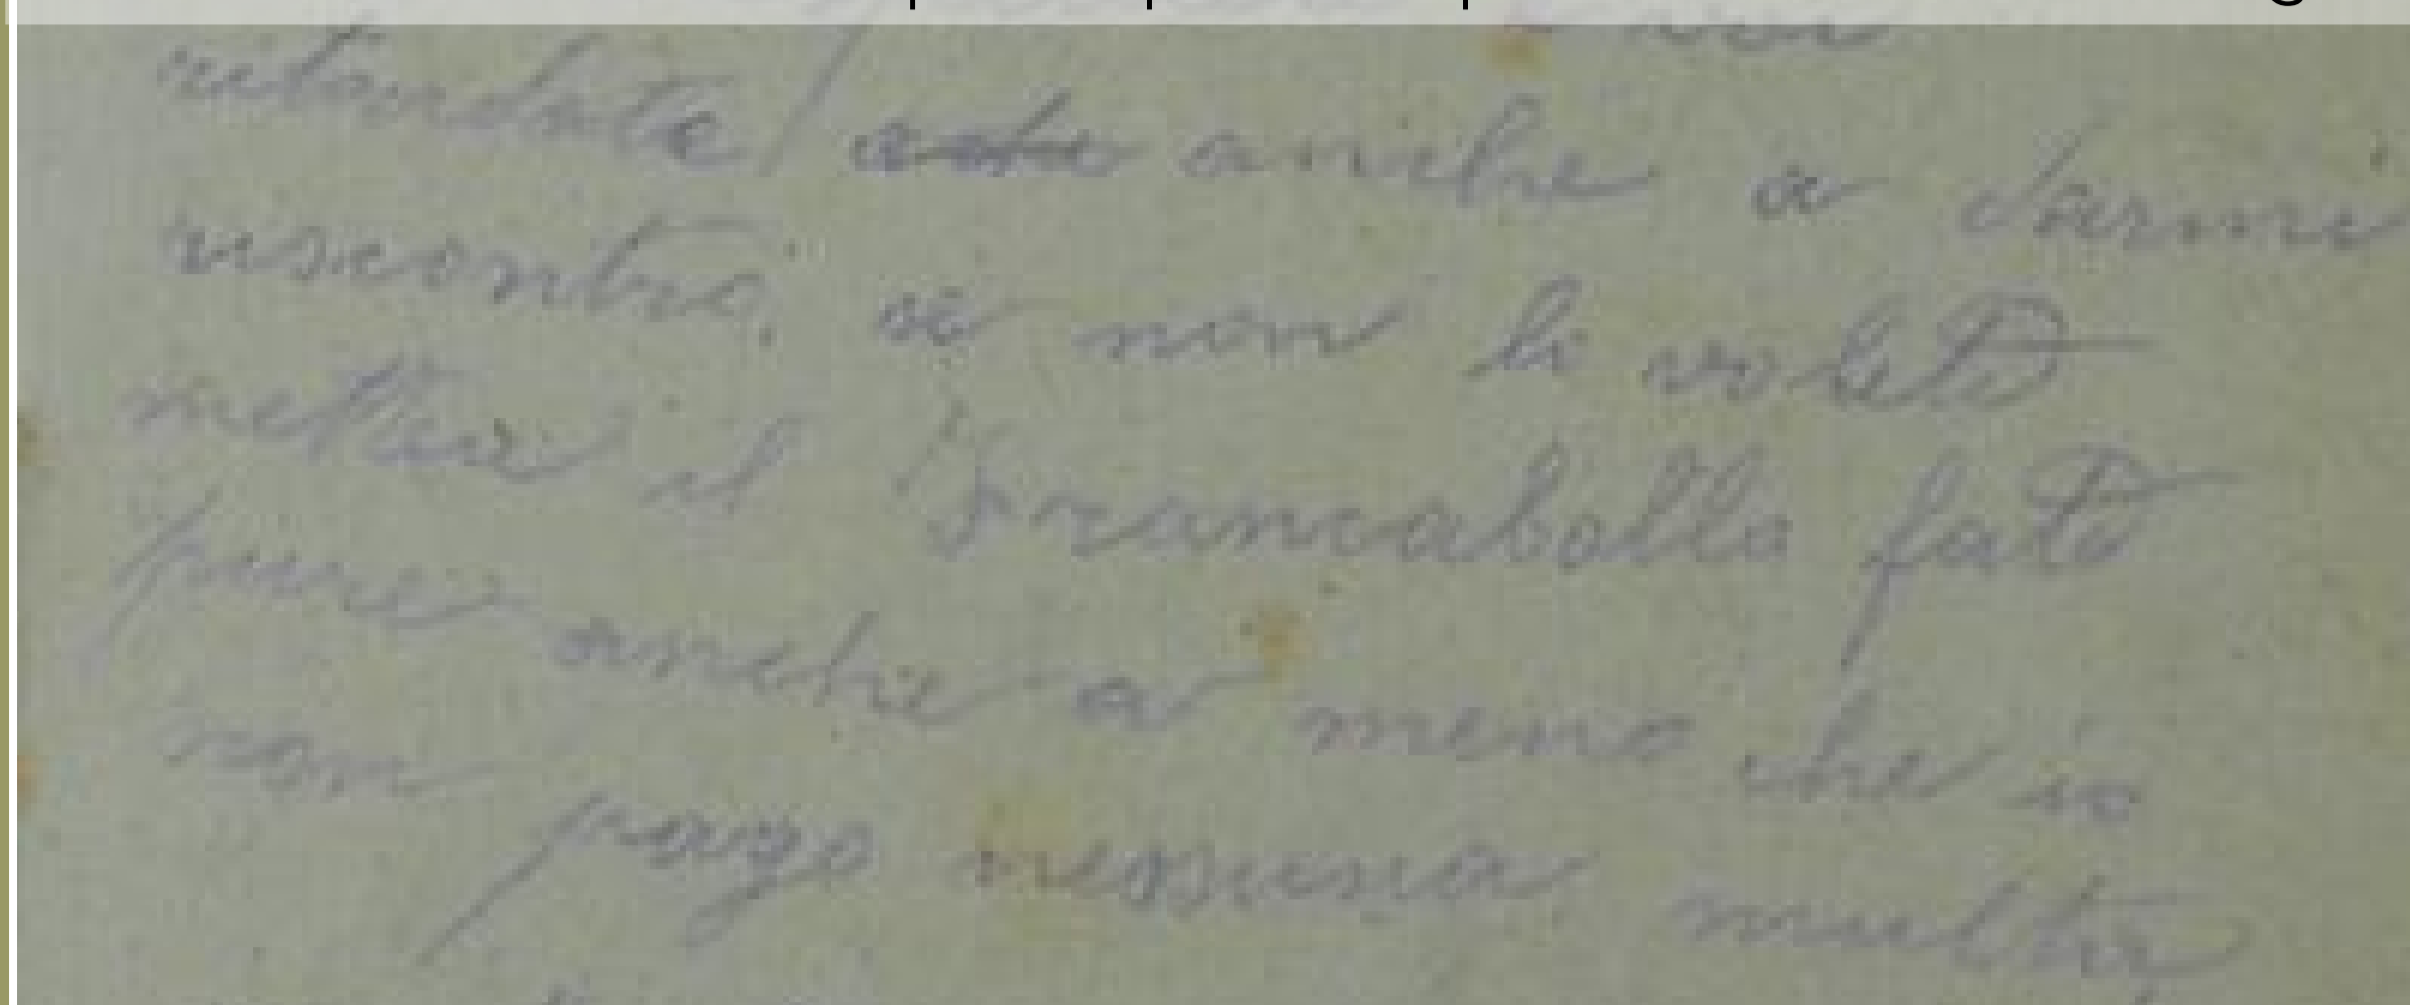 ritardate anche a darmi
riscontro. se non lo volete
mettere il francabollo fate
pure anche a meno che io
non pago nessuna multa